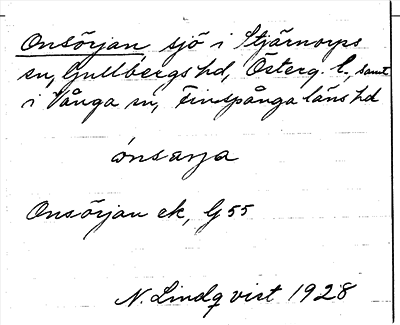 Onsörjan, sjö i Stjärnorps
sn, Gullbergs hd, Österg. l., samt
i Vånga sn, Finspånga läns hd
ònsarja
Onsörjan ek, G 55
N. Lindqvist 1928